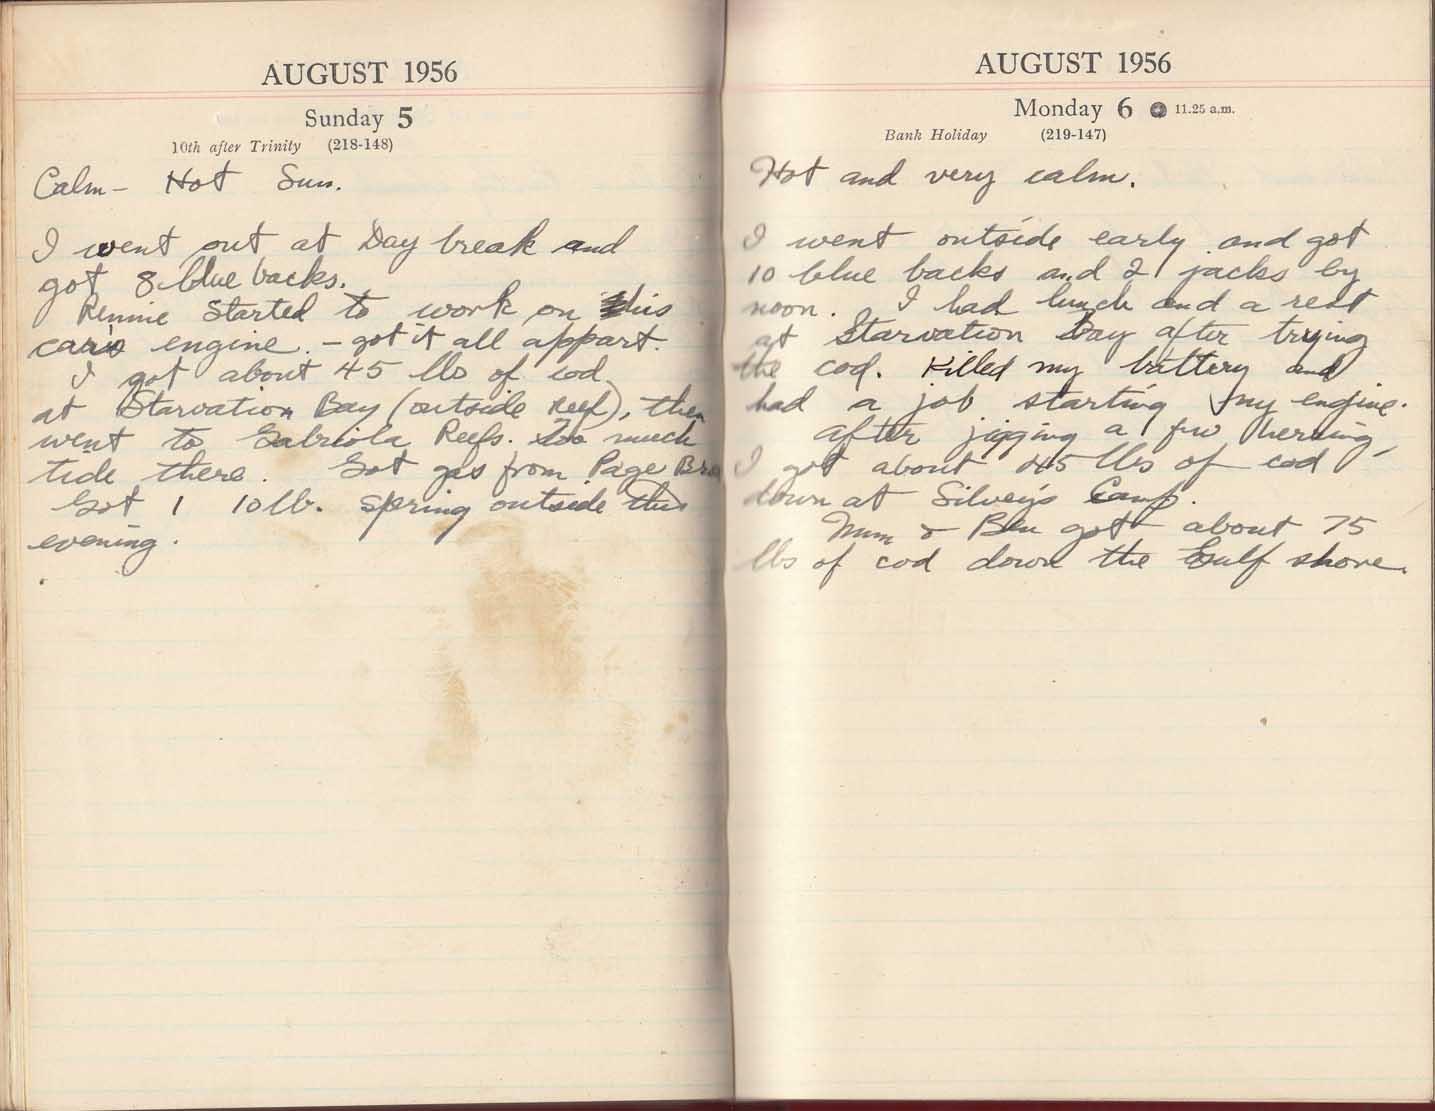 AUGUST 1956
Sunday 5
10th after Trinity (218-148)
Calm - Hot Sun.
I went out at Day break and
got 8 blue backs.
Rennie Started to work on his
car's engine. - got it all appart.
I got about 45 lbs of cod
at Starvation Bay (outside reef), then
went to Gabriola Reefs. Too much
tide there. Got gas from Page Bro
Got 1 10 lb. spring outside this
evening.
AUGUST 1956
Monday 6 11.25 a.m.
Bank Holiday (219-147)
Hot and very calm.
I went outside early and got
10 blue backs and 2 jacks by
noon. I had lunch and a rest
at Starvation Bay after trying
the cod. Killed my battery and
had a job starting my engine.
after jigging a few herring,
I got about 45 lbs of cod
down at Silvey's Camp.
Mum & Ben got about 75
lbs of cod down the Gulf shore.